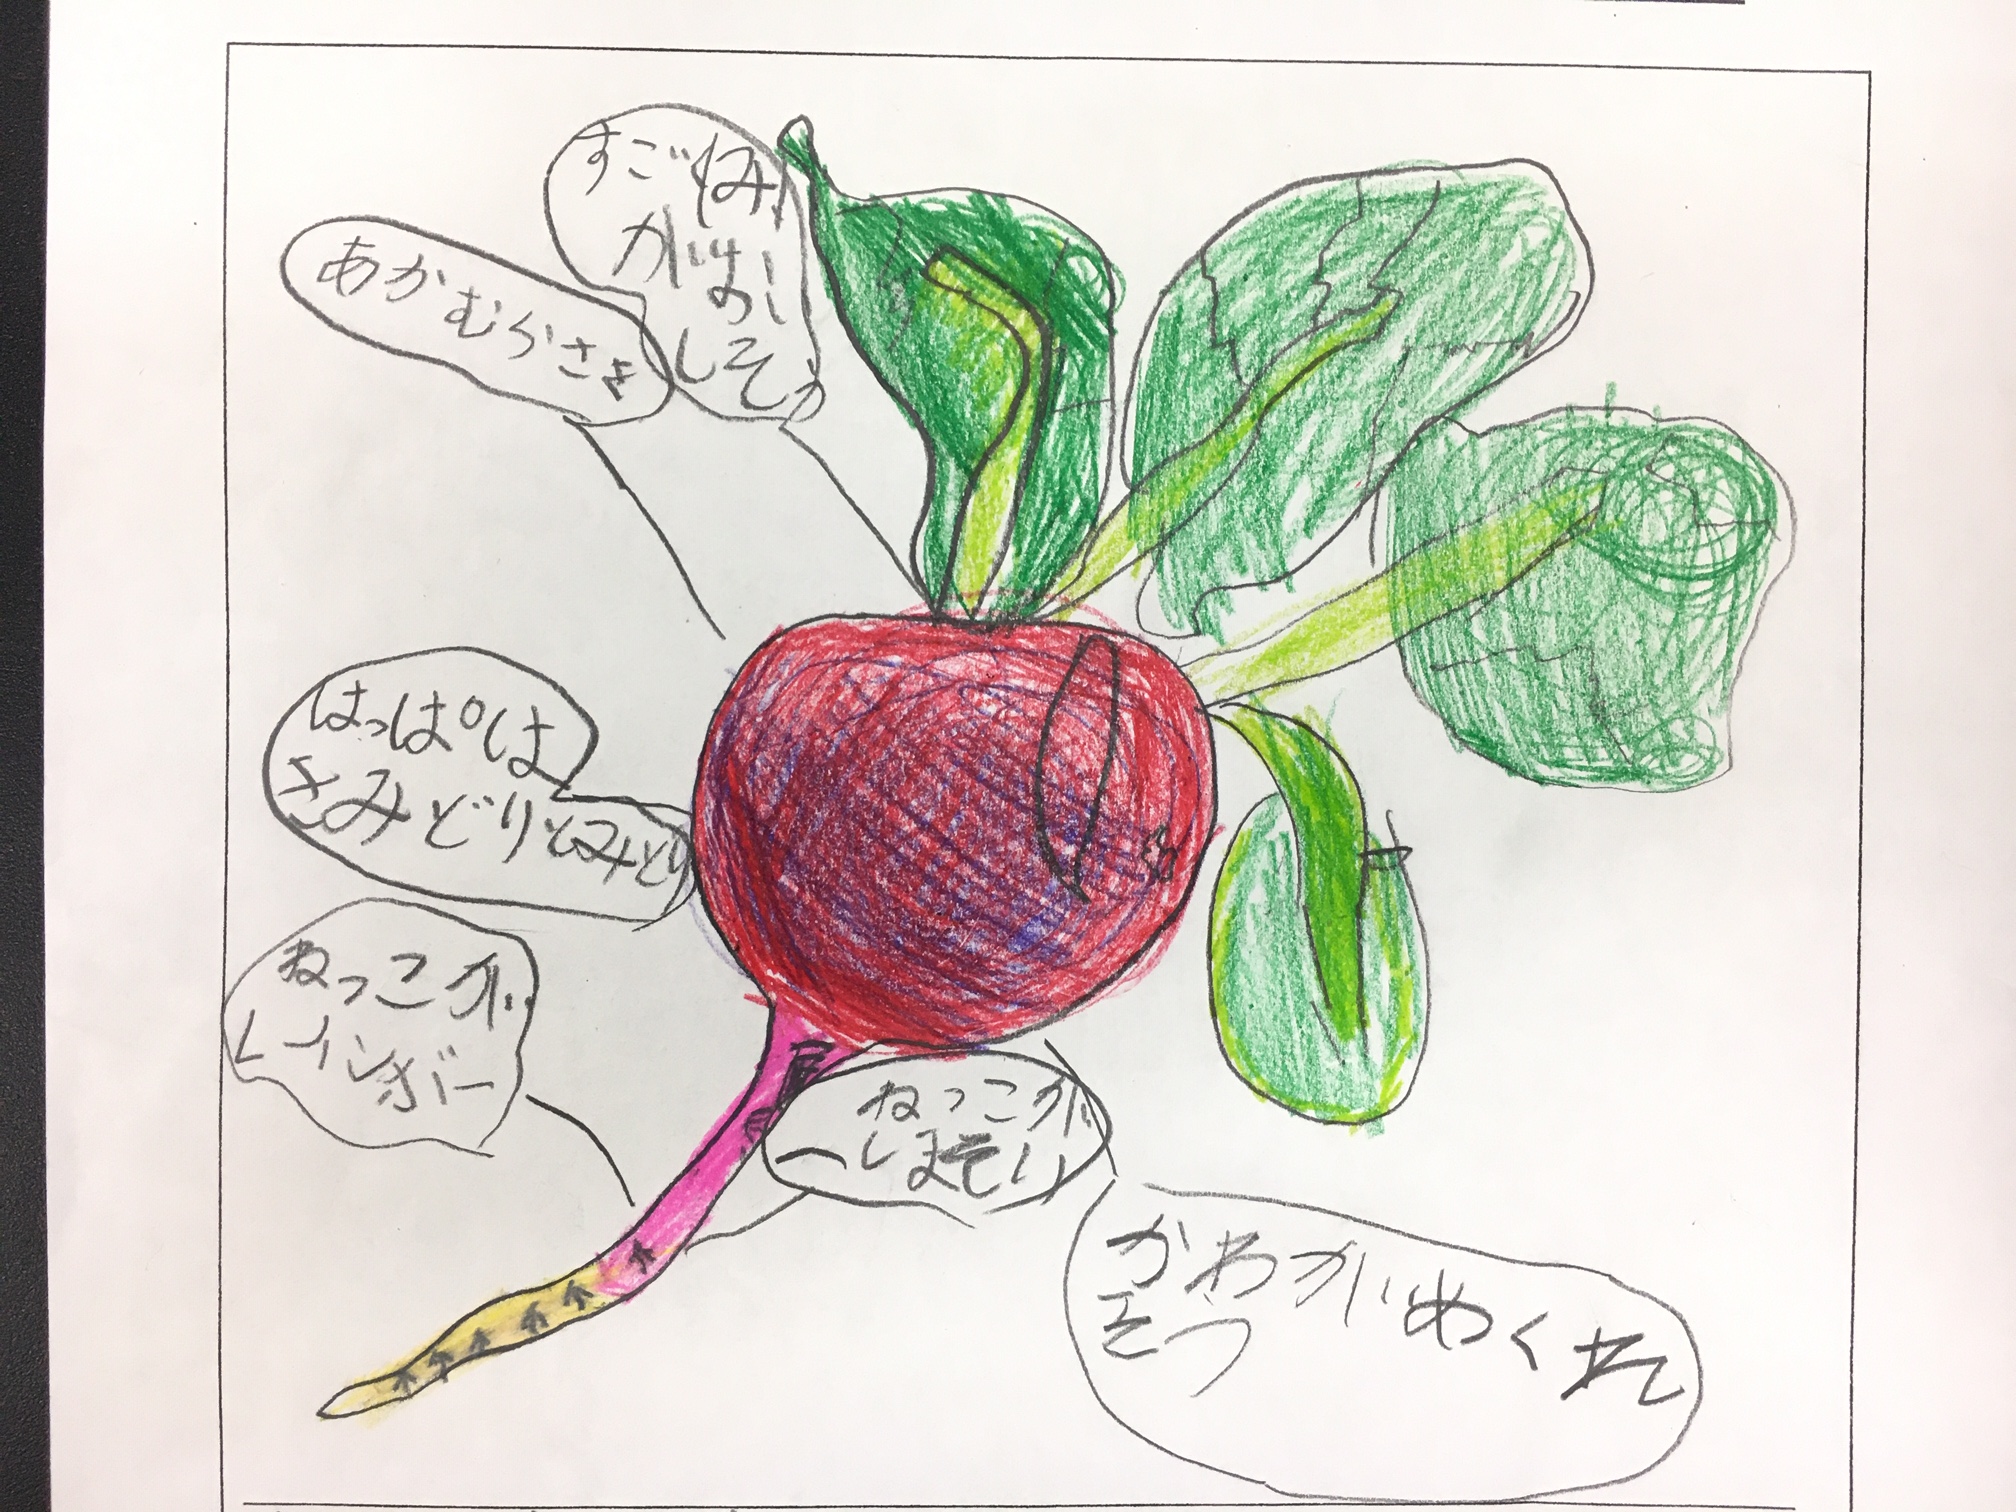 あかむらさき
すごくみ
がおい
しそう
はっぱは
きみどりとみどり
ねっこが
レインボー
ねっこが
しましま
かわがめくれ
そう